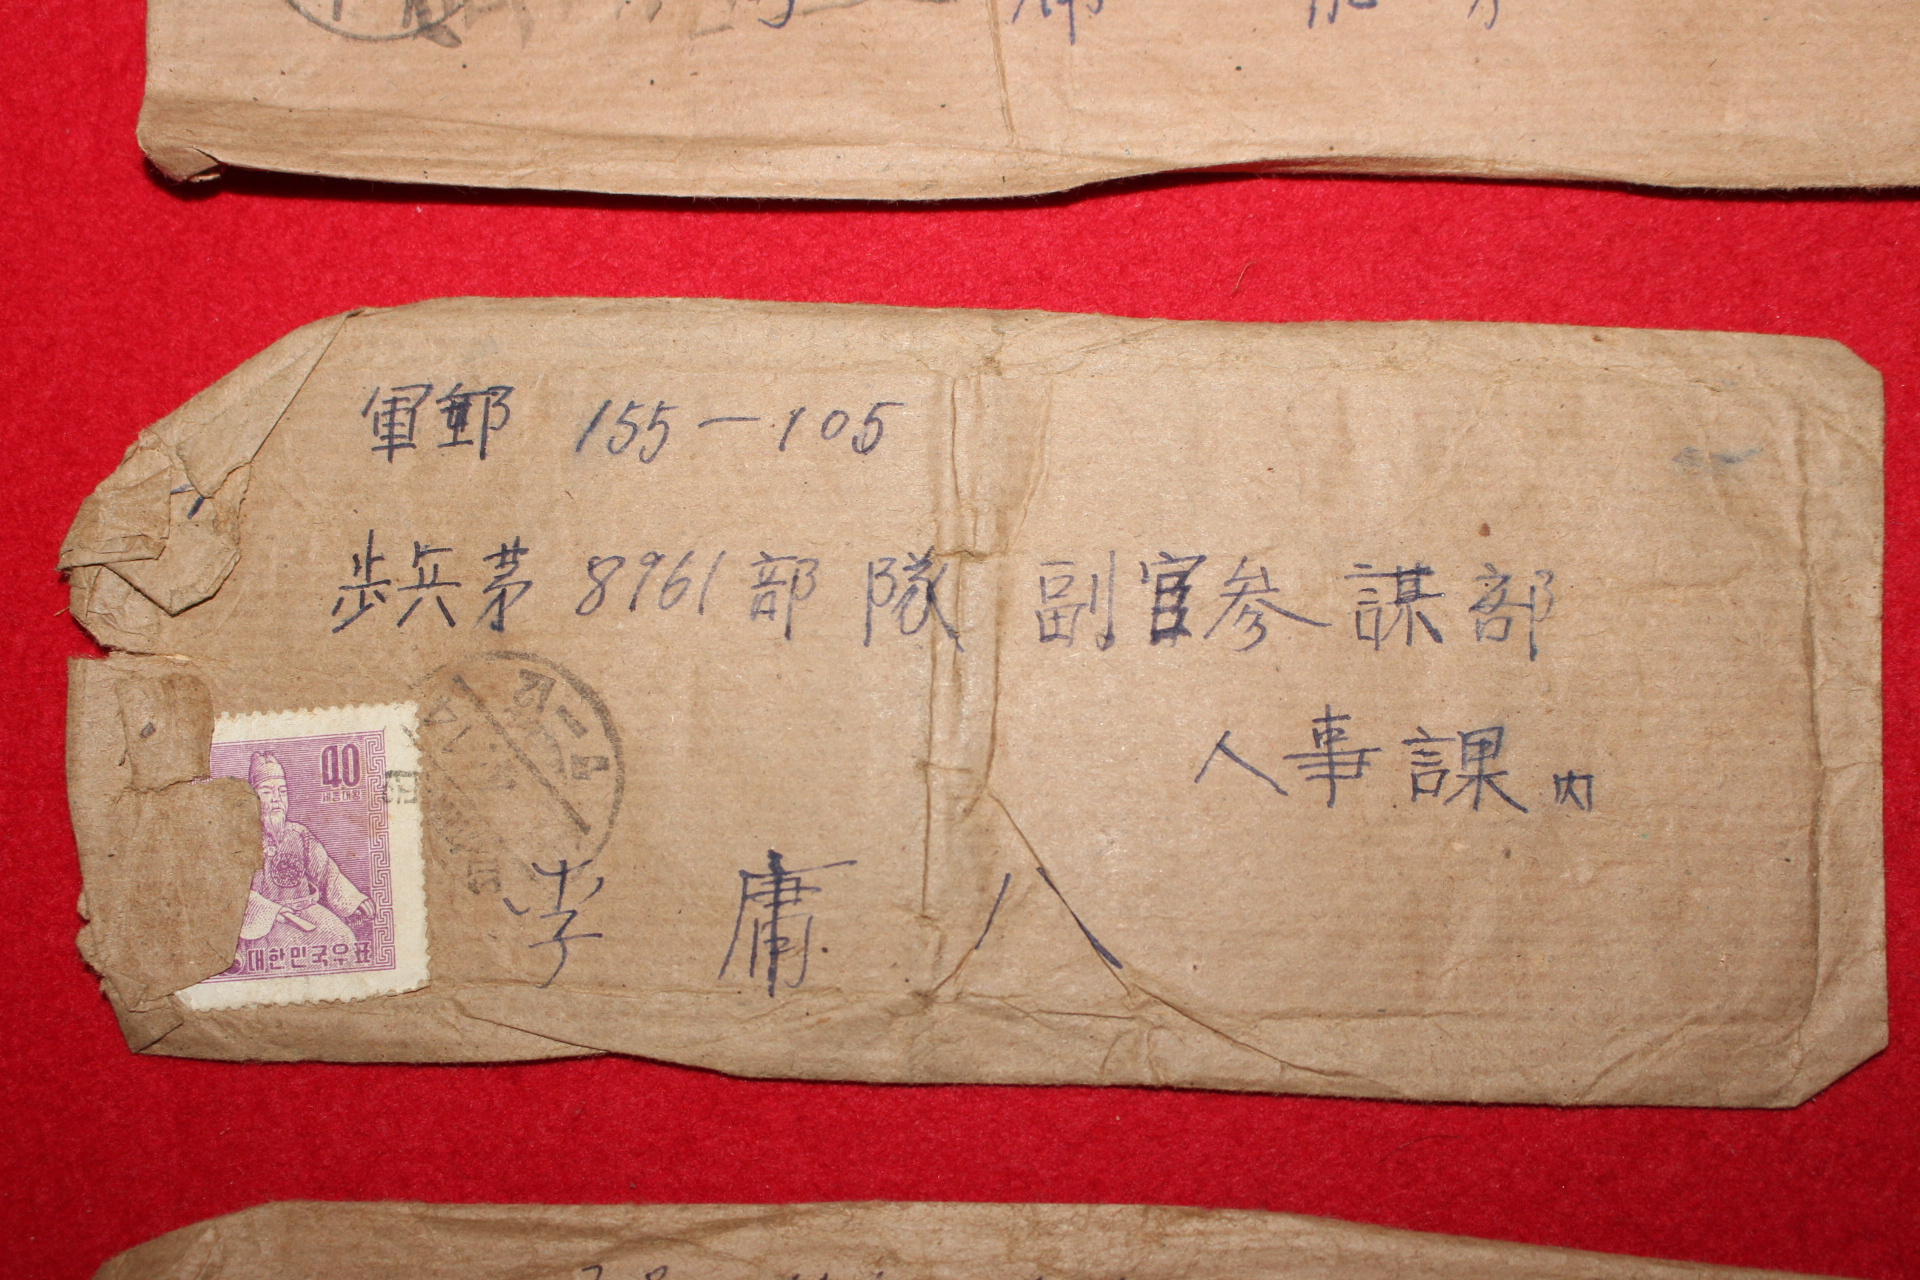 軍郵 155-105
步兵第 8961 部隊 副官参謀部
人事課 内
李 庸 八
40
세종대왕
대한민국우표